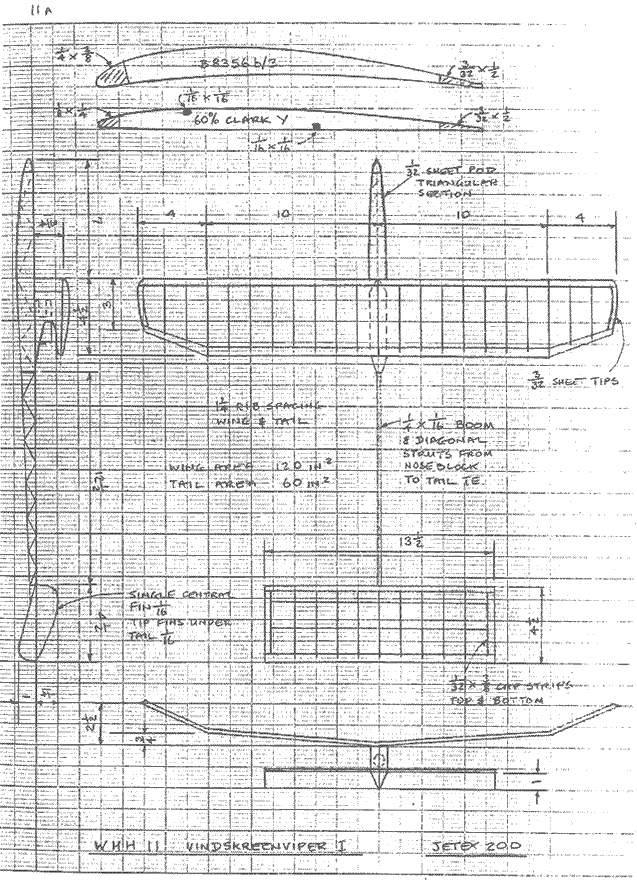 11A
1/4 x 3/8
B8356 b/3
3/32 x 1/2
1/8 x 1/4
1/16 x 1/16
60% CLARK Y
3/32 x 1/2
1/16 x 1/16
1/32 SHEET POD
TRIANGULAR
SECTION
7
4
10
10
4
3
4 1/2
3/32 SHEET TIPS
1 1/4 RIB SPACING
WING & TAIL
1/4 x 1/16 BOOM
& DIAGONAL
STRUTS FROM
NOSEBLOCK
TO TAIL TE.
WING AREA 120 IN²
TAIL AREA 60 IN²
12 1/2
13 1/2
SINGLE CENTRAL
FIN 1/16
TIP FINS UNDER
TAIL 1/16
4 1/2
1/32 x 3/8 CAP STRIPS
TOP & BOTTOM
1
2 1/2
3/4
1
WHH 11 VINDSKREENVIPER I JETEX 200